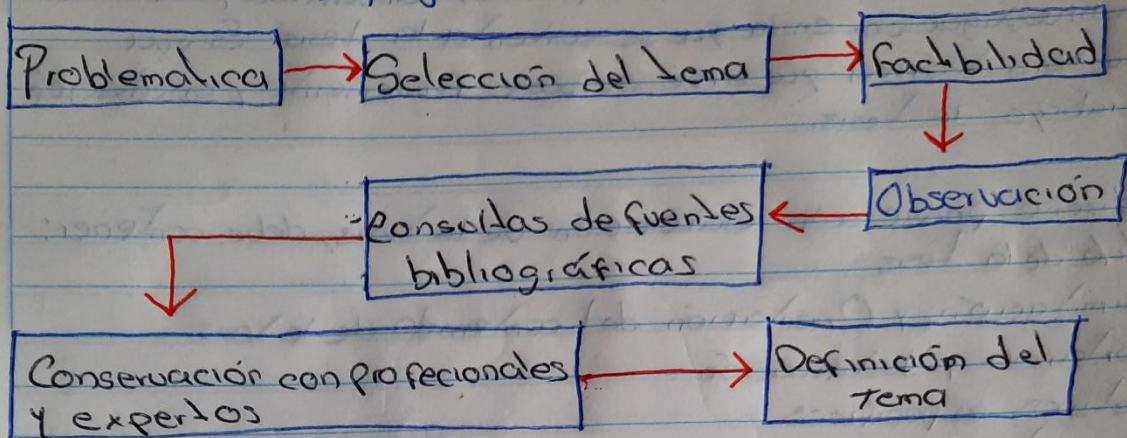 Problematica
Selección del tema
Factibilidad
Observación
Consultas de fuentes
bibliográficas
Conservación con profecionales
y expertos
Definición del
tema